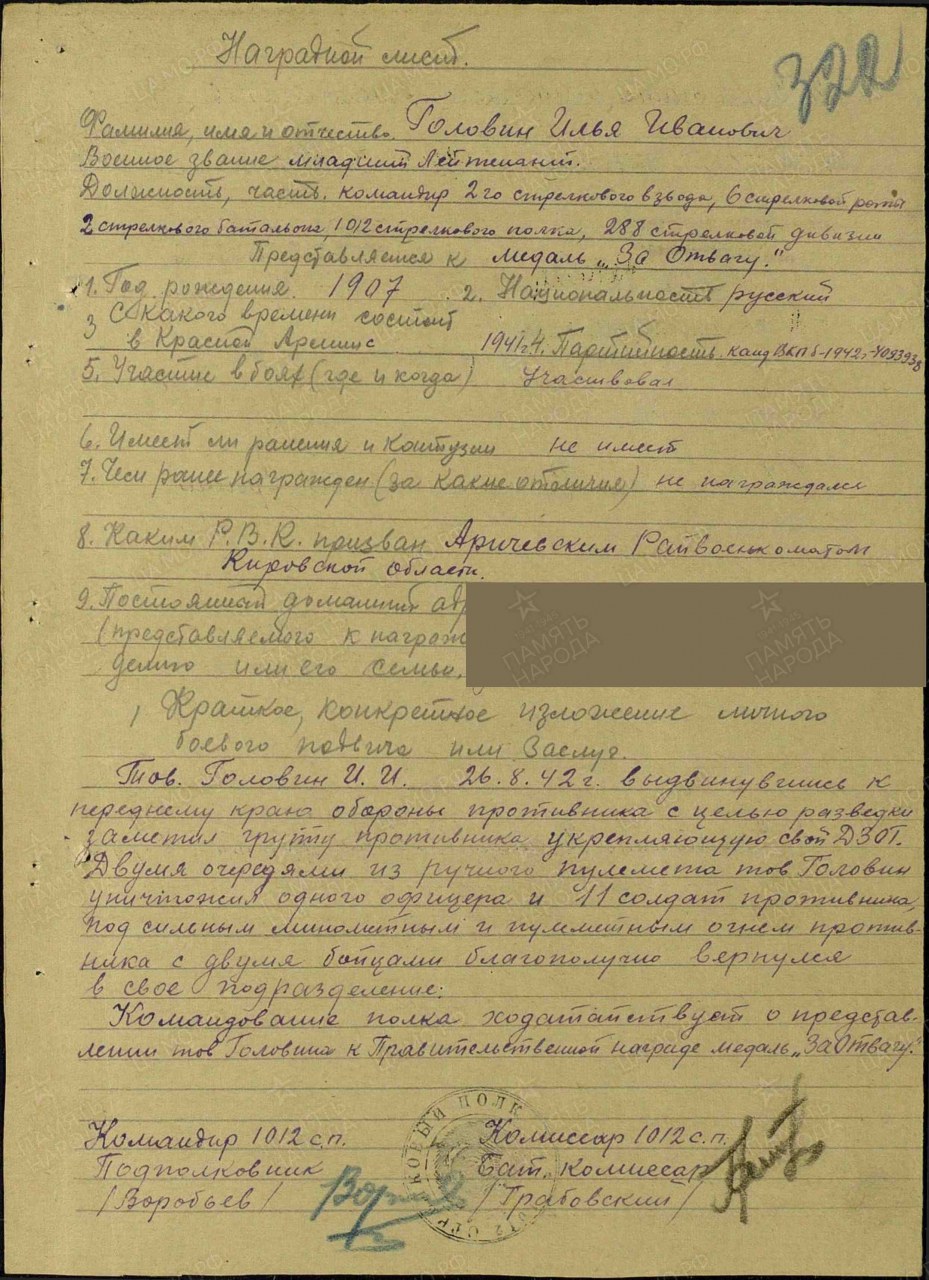 Наградной лист.
322
Фамилия, имя и отчество. Головин Илья Иванович
Военное звание младший Лейтенант.
Должность, часть. командир 2го стрелкового взвода, 6 стрелковой роты
2 стрелкового батальона, 1012 стрелкового полка, 288 стрелковой дивизии
Представляется к медаль „За Отвагу."
1. Год рождения. 1907 2. Национальность русский
3 С какого времени состоит
в Красной Армии с 1941 г. 4. Партийность. канд ВКПб-1942г-4093938
5. Участие в боях (где и когда) Участвовал
6. Имеет ли ранения и контузии не имеет
7. Чем ранее награжден (за какие отличия) не награждался
8. Каким Р.В.К. призван Аричевским Райвоенкоматом
Кировской области.
9. Постоянный домашний адр
(представляемого к награж
дению или его семьи.
ПАМЯТЬ НАРОДА ПАМЯТЬ НАРОДА
Краткое, конкретное изложение личного
боевого подвига или Заслуг.
Тов. Головин И. И. 26.8.42 г. выдвинувшись к
переднему краю обороны противника с целью разведки
заметил группу противника укрепляющую свой ДЗОТ.
Двумя очередями из ручного пулемета тов Головин
уничтожил одного офицера и 11 солдат противника,
под сильным минометным и пулеметным огнем против-
ника с двумя бойцами благополучно вернулся
в свое подразделение.
Командование полка ходатайствует о представ-
лении тов Головина к Правительственной награде медаль „За Отвагу."
Командир 1012 с.п. Комиссар 1012 с.п.
Подполковник Бат. Комиссар
/Воробьев/ /Грабовский/